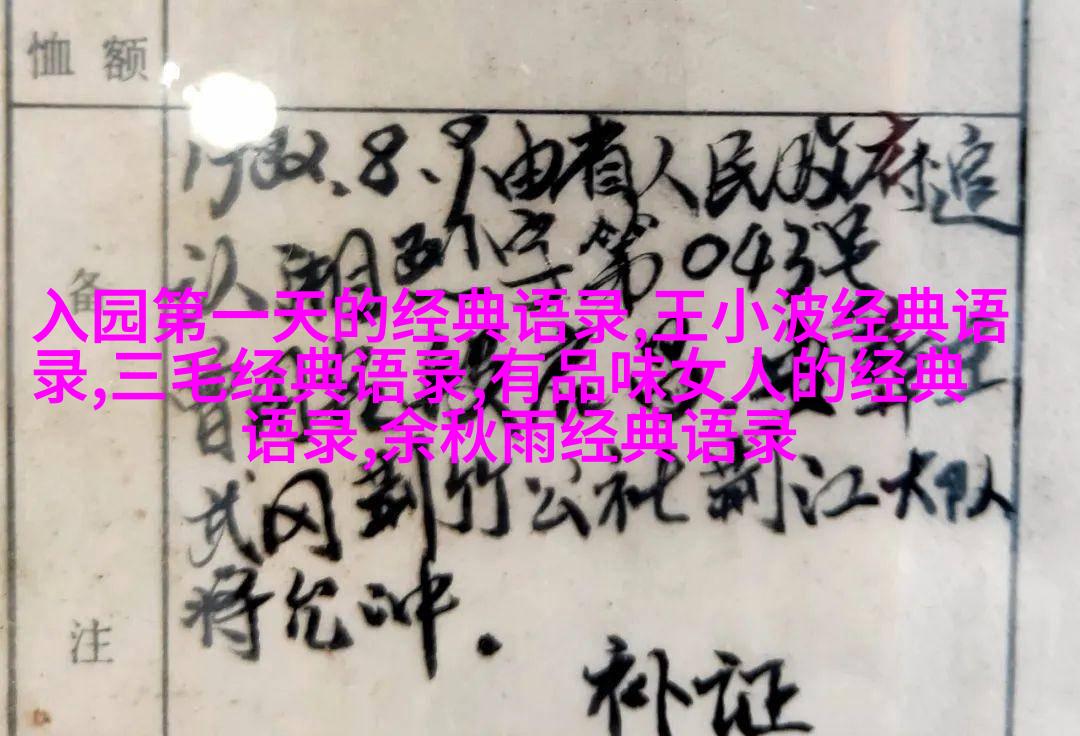 恤额
1982.8.9由省人民政府追
认湖烈字第043号
备
入园第一天的经典语录,王小波经典语
录,三毛经典语录,有品味女人的经典
语录,余秋雨经典语录
武冈荆竹公社荆江大队
将允冲.
注
补证